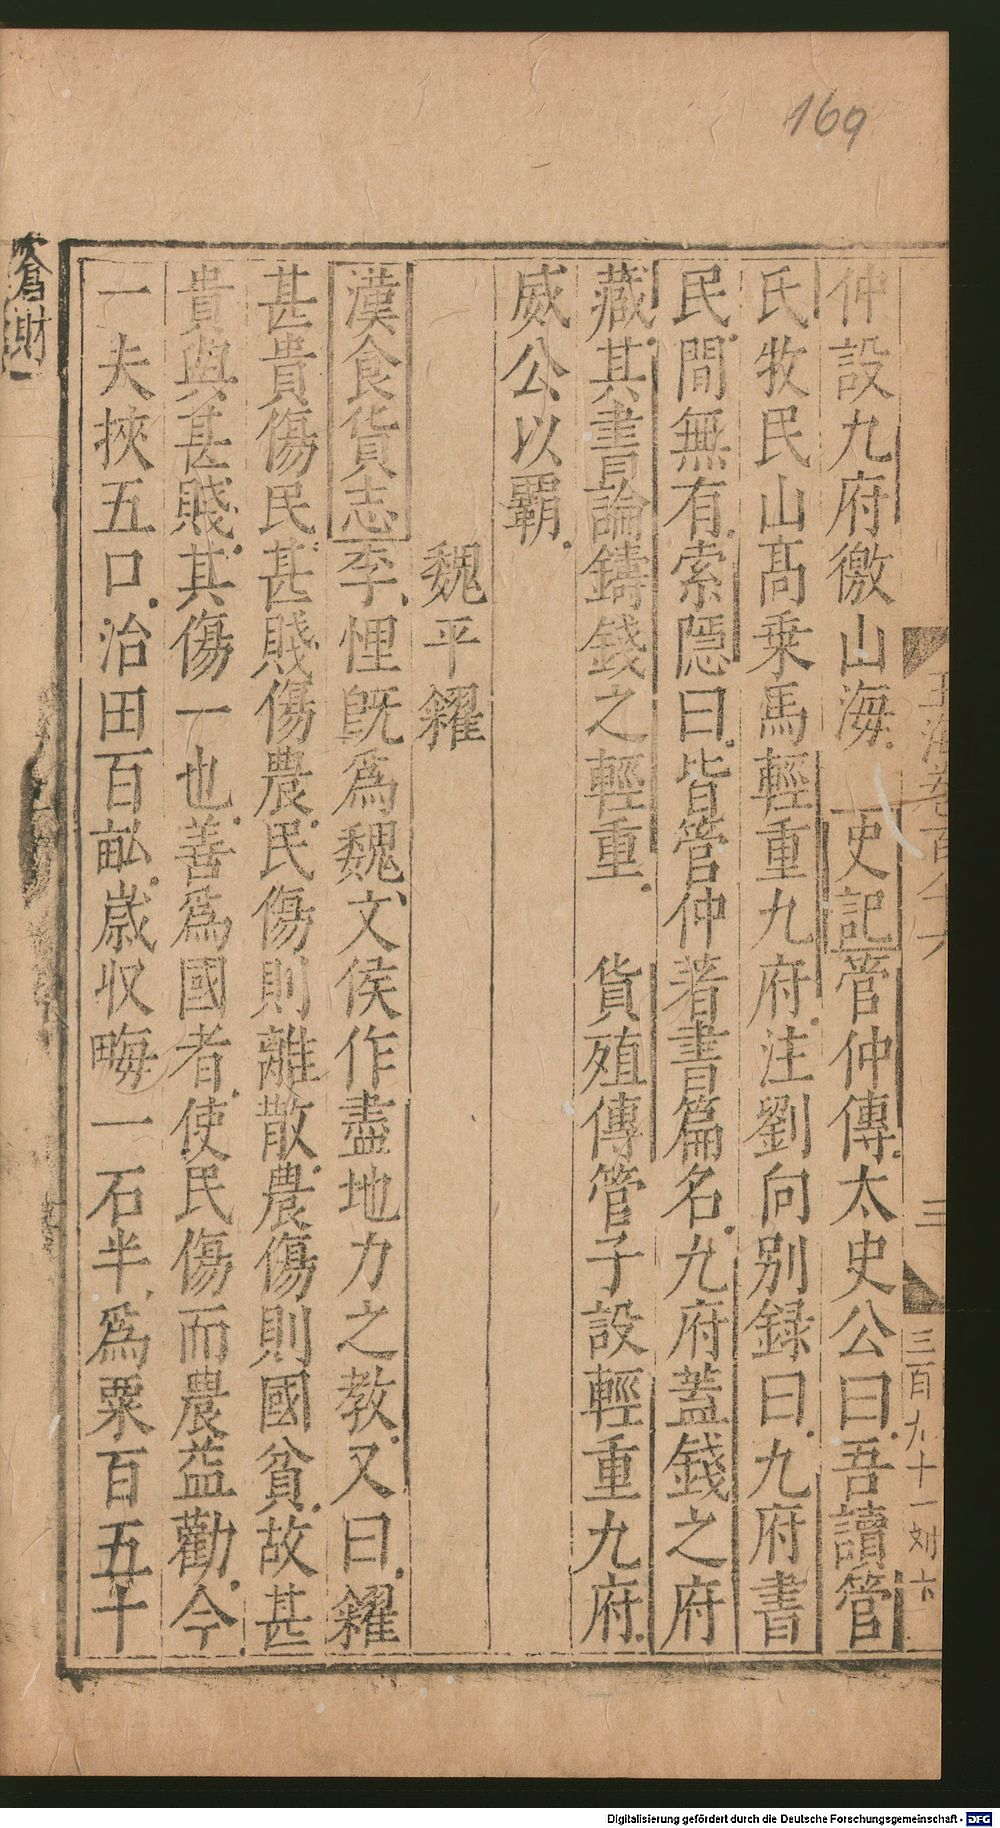 169
玉海卷百八十六
三
三百九十一
仲設九府徼山海 史記管仲傳太史公曰吾讀管
氏牧民山髙乗馬輕重九府注劉向别録曰九府書
民間無有索隱曰皆管仲著書篇名九府蓋錢之府
藏其書論鑄錢之輕重 貨殖傳管子設輕重九府
威公以霸
魏平糴
漢食貨志李悝既爲魏文侯作盡地力之教又曰糴
甚貴傷民甚賤傷農民傷則離散農傷則國貧故甚
貴與甚賤其傷一也善爲國者使民傷而農益勸今
一夫挾五口治田百畝歳収畮一石半爲粟百五十
Digitalisierung gefördert durch die Deutsche Forschungsgemeinschaft - DFG